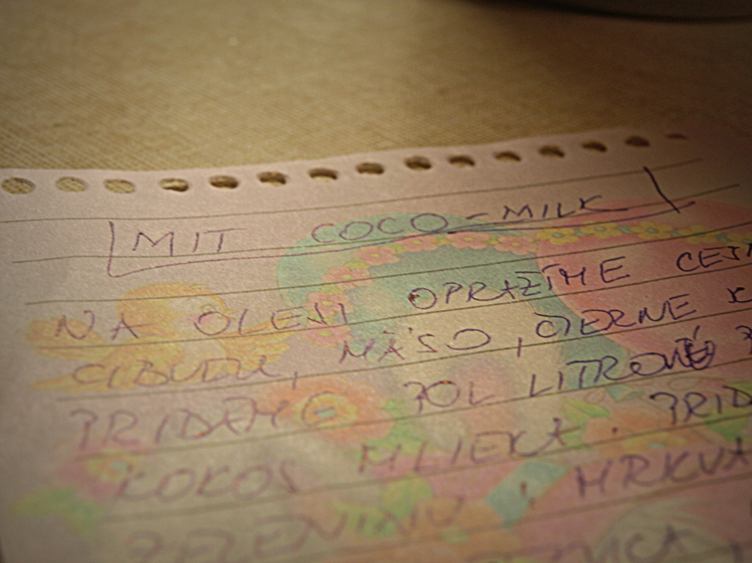 MIT COCO-MILK
NA OLEJI OPRAŽÍME
CIBUĽU, MÄSO, ČIERNE K
PRIDÁME POL LITROVÉ
KOKOS MLIEKA. PRID
ZELENINU: MRKVA